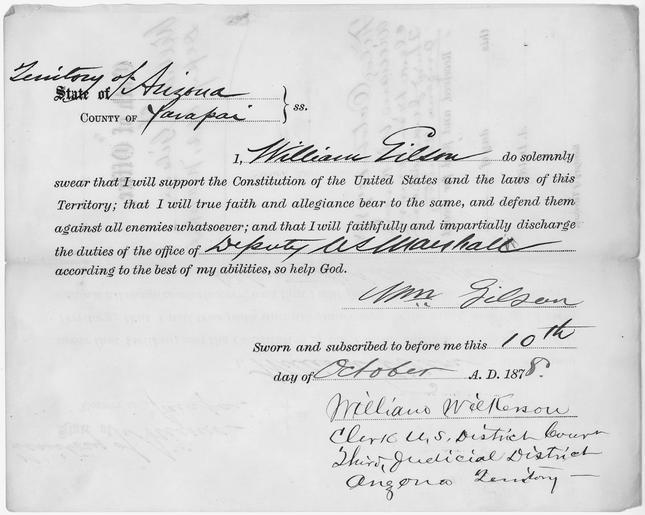 Territory of
State of Arizona
County of Yavapai } ss.
I, William Gilson do solemnly
swear that I will support the Constitution of the United States and the laws of this
Territory; that I will true faith and allegiance bear to the same, and defend them
against all enemies whatsoever; and that I will faithfully and impartially discharge
the duties of the office of Deputy US Marshall
according to the best of my abilities, so help God.
Wm Gilson
Sworn and subscribed to before me this 10th
day of October A. D. 1878.
William Wilkerson
Clerk U.S. District Court
Third, Judicial District
Arizona Territory —